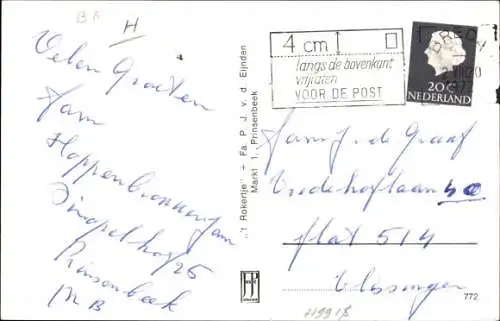 BX
H
Velen Groeten
Fam
Hoppenbrouwers
Singelhof 25
Prinsenbeek
N B
"'t Rokertje" - Fa. P. J. v. d. Eijnden
Markt 1, Prinsenbeek
4 cm
langs de bovenkant
vrijlaten
VOOR DE POST
BREDA
20 c
NEDERLAND
Fam J. de Graaf
Vredehoflaan 40
flat 514
Vlissingen
772